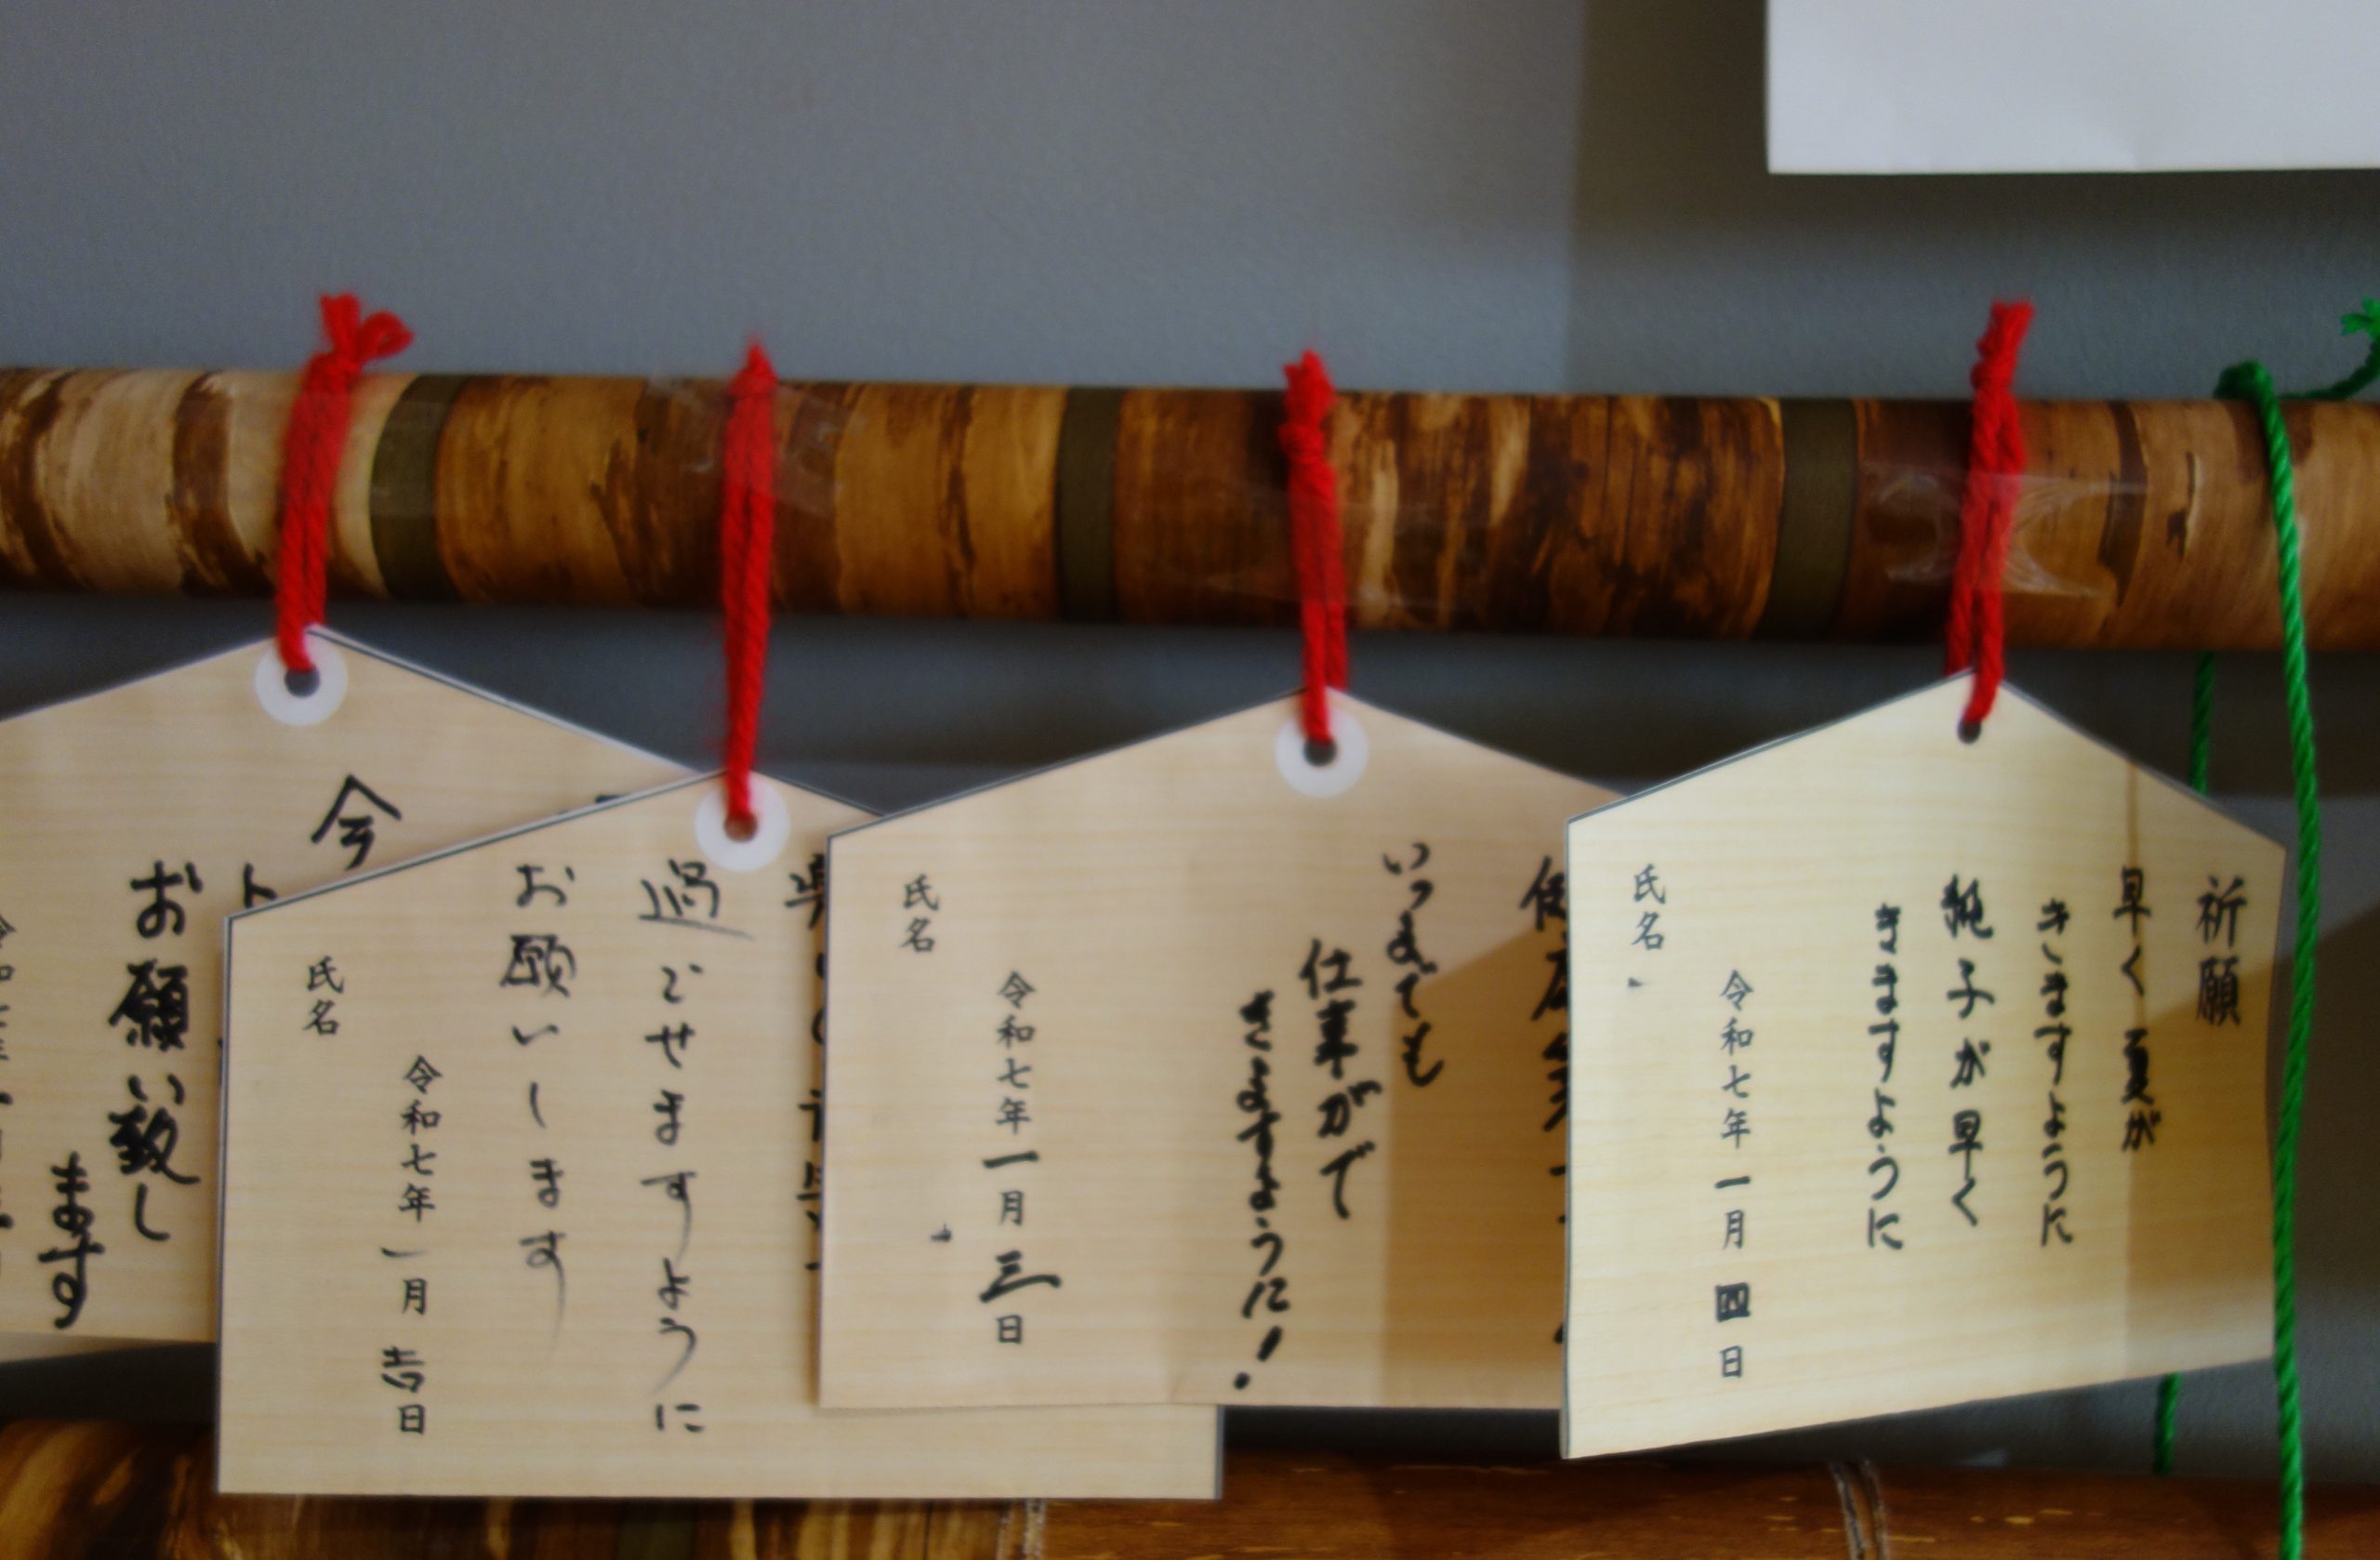 祈願
早く夏が
きますように
純子が早く
きますように
令和七年一月四日
氏名
いつまでも
仕事がで
きますように!
令和七年一月三日
氏名
過ごせますように
お願いします
令和七年一月吉日
氏名
今
ト
お願い致し
ます